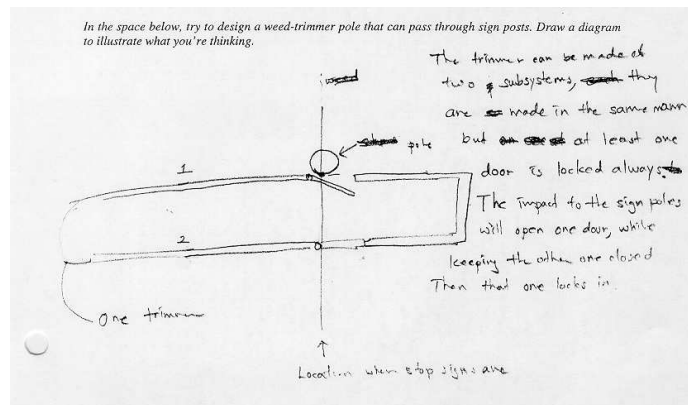 In the space below, try to design a weed-trimmer pole that can pass through sign posts. Draw a diagram
to illustrate what you're thinking.
The trimmer can be made of
two subsystems, they
are made in the same mann
but at least one
pole
door is locked always
1
The impact to the sign poles
will open one door, while
2
keeping the other one closed
Then that one locks in.
One trimmer
Location when stop signs are